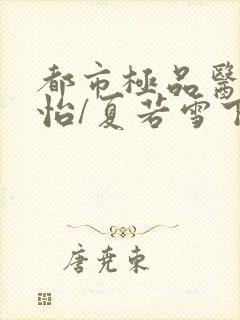 都市極品醫
怡/夏若雪下
唐堯東